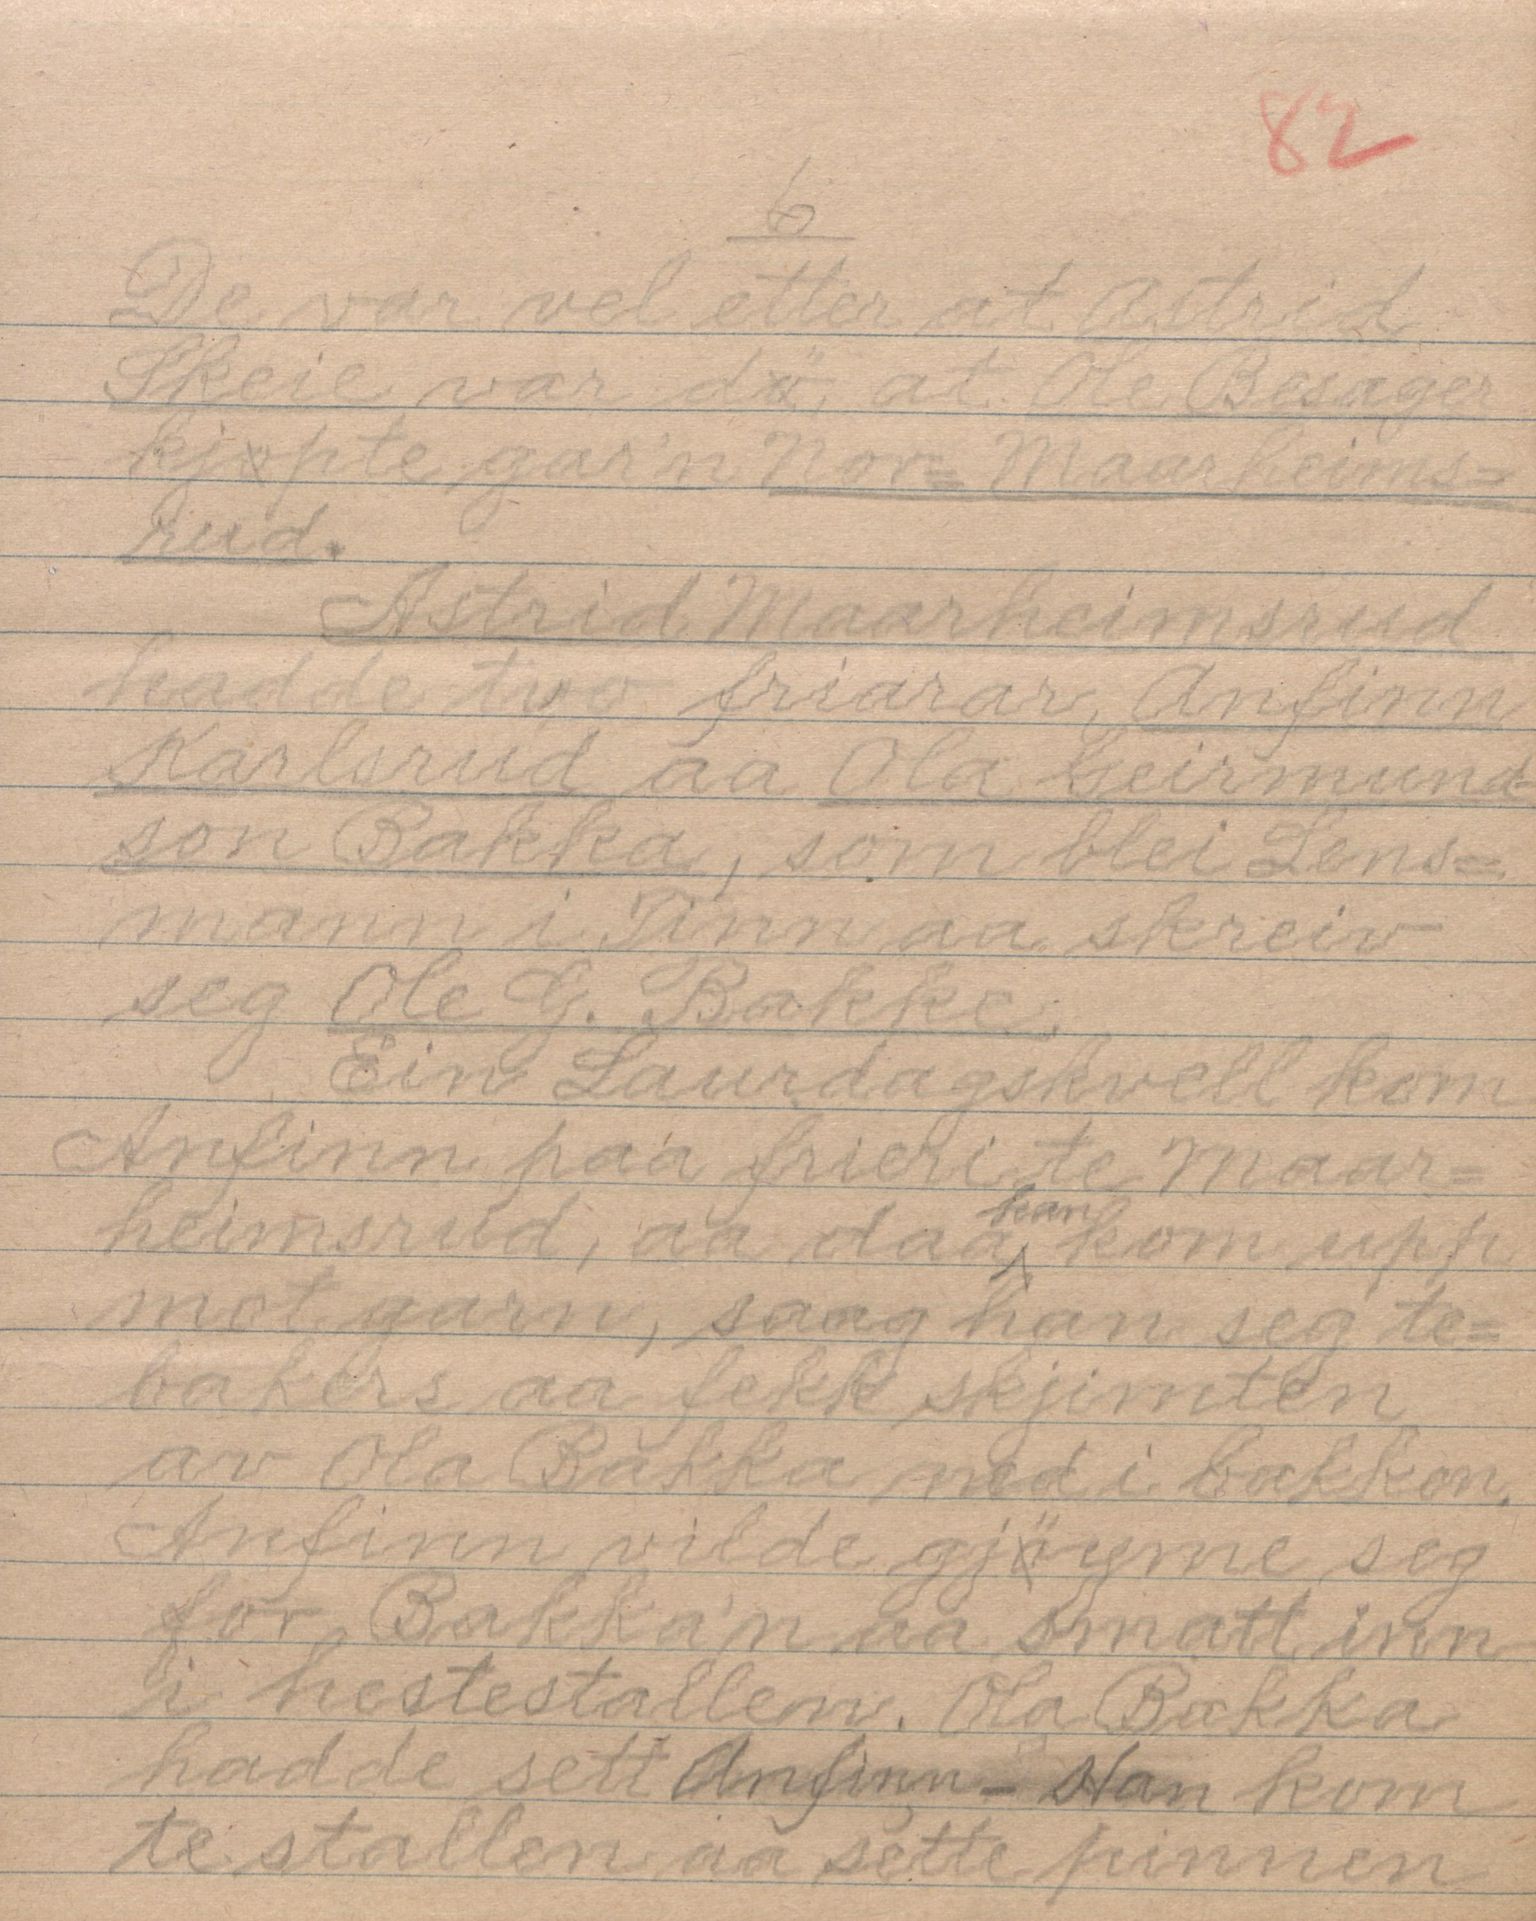 82
6
De var vel etter at Astrid
Skeie var dö, at Ole Besager
kjøpte gar'n Nor= Maarheims=
rud.
Astrid Maarheimsrud
hadde tvo friarar, Anfinn
Karlsrud aa Ola Geirmund=
son Bakka, som blei Lens=
mann i Tinn aa skreiv
seg Ole G. Bakke.
Ein Laurdagskvell kom
Anfinn paa frieri te Maar=
heimsrud, aa daa han kom upp
mot garn, saag han seg te=
bakers aa fekk skjimten
av Ola Bakka ned i bakkon.
Anfinn vilde gjöyme seg
for Bakka'n aa smatt inn
i hestestallen. Ola Bakka
hadde sett Anfinn - Han kom
te stallen aa sette pinnen